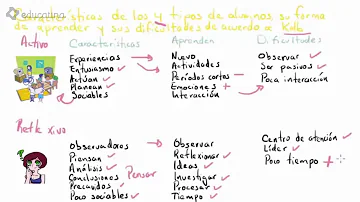 educatina
Características de los 4 tipos de alumnos, su forma
de aprender y sus dificultades de acuerdo a Kolb
Activo
Características
Aprenden
Dificultades
Experiencias
Entusiasmo
Actúan
Planean
Sociables
Nuevo
Actividades
Períodos cortos
Emociones +
Interacción
Observar
Ser pasivos
Poca interacción
Reflexivo
Observadores
Piensan
Análisis
Conclusiones
Precavidos
Poco sociables
Pensar
Observar
Reflexionar
Ideas
Investigar
Procesar
Tiempo
Centro de atención
Líder
Poco tiempo +